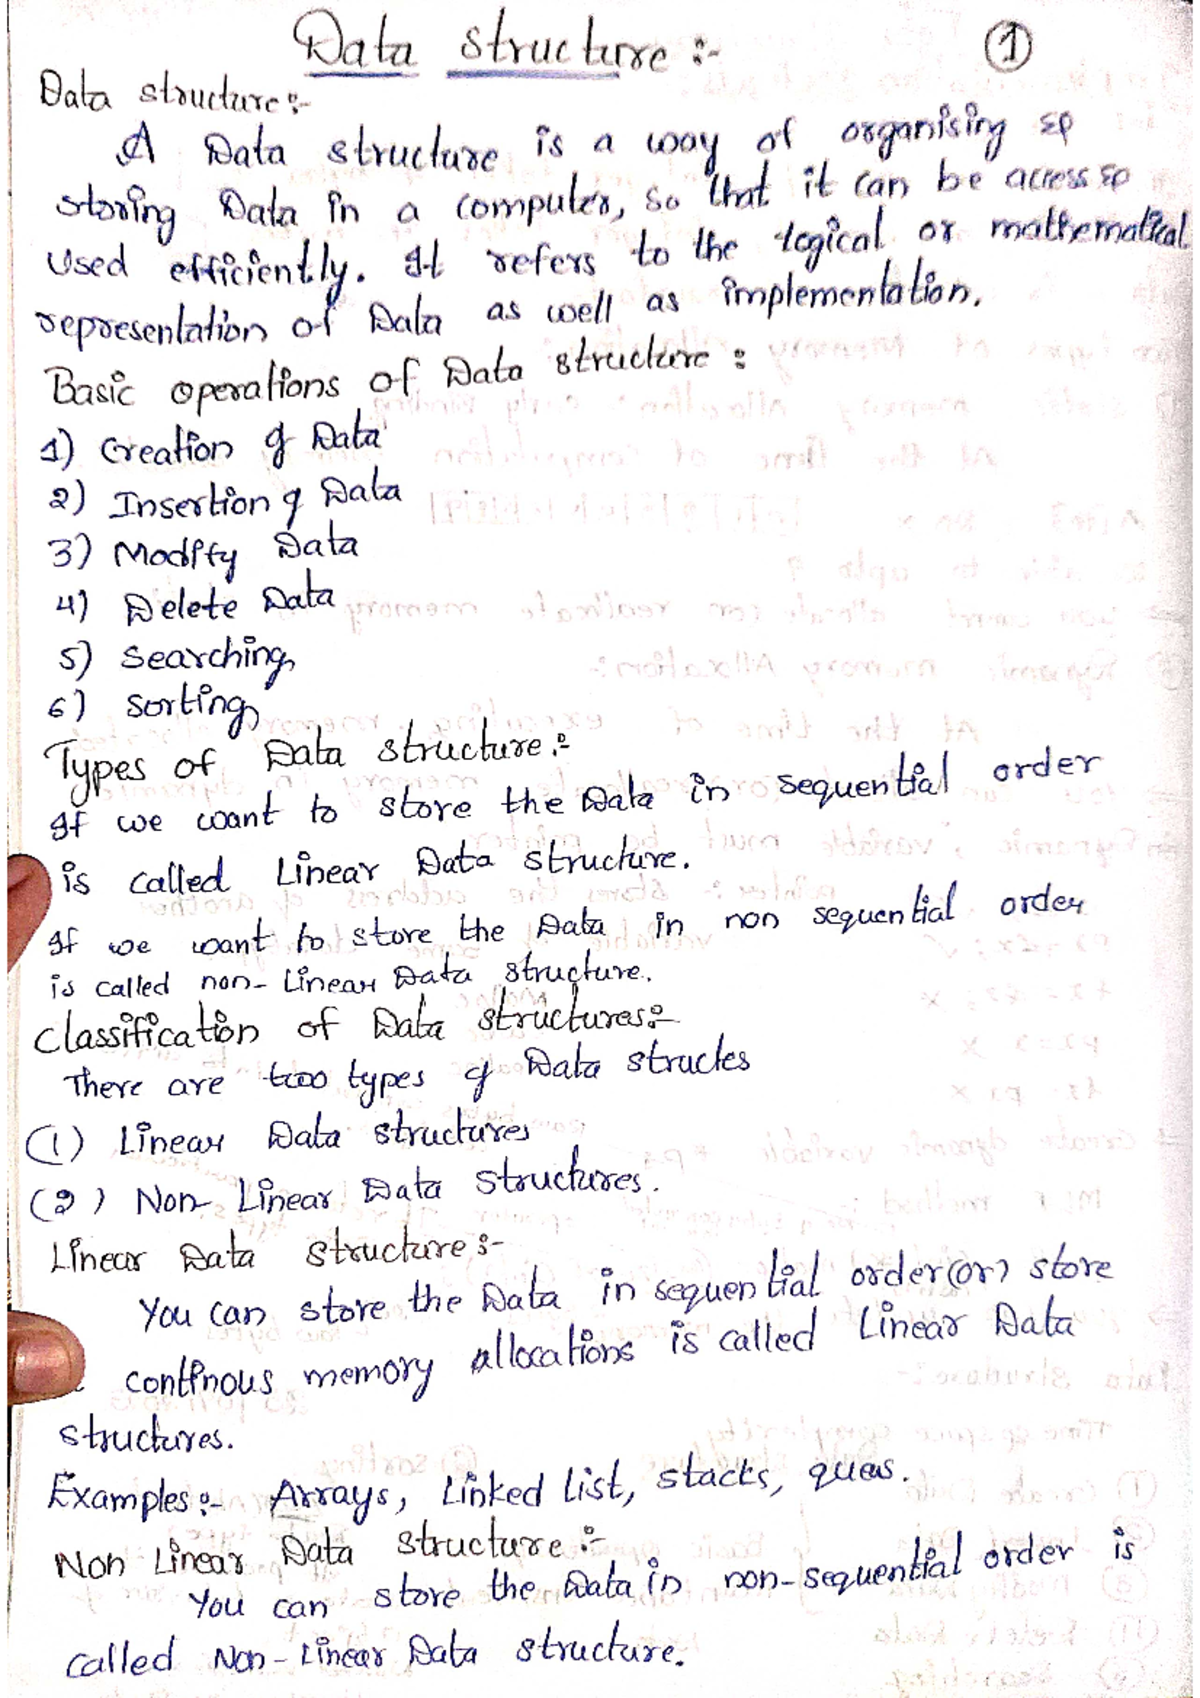 Data structure :-
①
Data structure:-
A Data structure is a way of organising &
storing Data in a computer, so that it can be access &
used efficiently. It refers to the logical or mathematical
representation of Data as well as implementation.
Basic operations of Data structure :
1) Creation of Data
2) Insertion of Data
3) Modify Data
4) Delete Data
5) Searching
6) Sorting
Types of Data structure:-
If we want to store the Data in sequential order
is called Linear Data structure.
If we want to store the Data in non sequential order
is called non-Linear Data structure.
Classification of Data structures:-
There are two types of Data structes
(1) Linear Data structures
(2) Non-Linear Data structures.
Linear Data structure:-
You can store the Data in sequential order(or) store
continous memory allocations is called Linear Data
structures.
Examples:- Arrays, Linked list, stacks, ques.
Non Linear Data structure:-
You can store the Data in non-sequential order is
called Non-Linear Data structure.